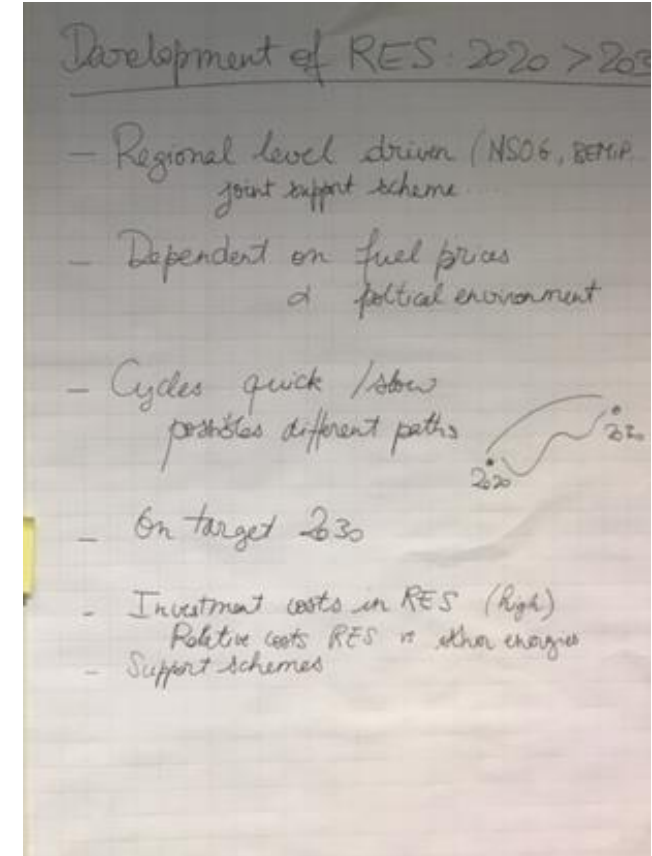 Development of RES: 2020 > 203
- Regional level driven (NSOG, BEMIP
joint support scheme ...
- Dependent on fuel prices
& poltical environment
- Cycles quick / slow
different paths
2020
2030
- On target 2030
- Investment costs in RES (high)
Relative costs RES vs other energies
- Support schemes